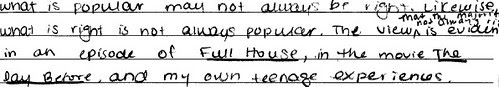 what is popular may not always be right. Likewise,
that the
not always
what is right is not always popular. The view is eviden
in an episode of Full House, in the movie The
Day Before, and my own teenage experiences.